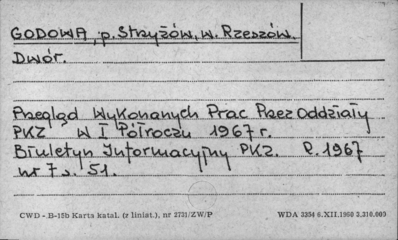 GODOWA, p. Strzyżów, w. Rzeszów.
Dwór.
Przegląd Wykonanych Prac Przez Oddziały
PKZ W I Półroczu 1967 r.
Biuletyn Informacyjny PKZ. R. 1967
nr 7 s. 51.
CWD - B-15b Karta katal. (z liniat.), nr 2731/ZW/P WDA 3354 6.XII.1960 3.310.000